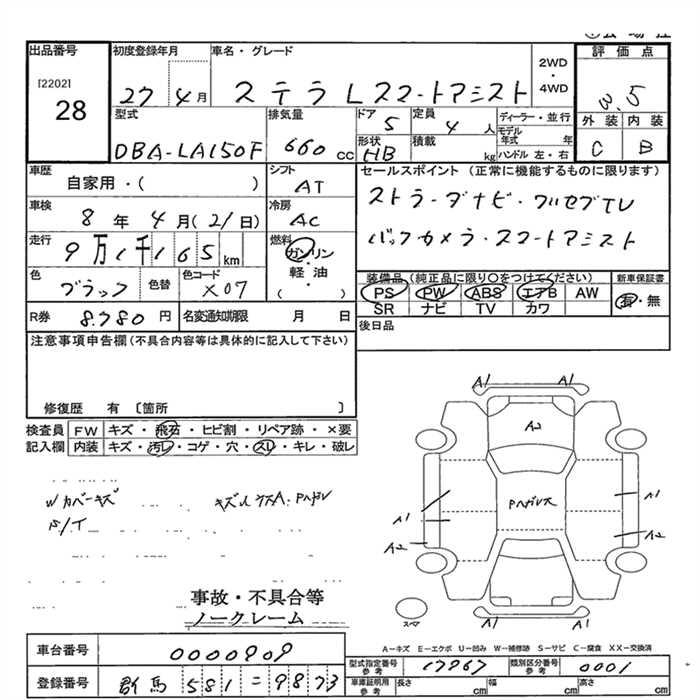 出品番号
[2202]
28
初度登録年月
27 4月
車名・グレード
ステラ Lスマートアシスト
2WD・4WD
評価点
3.5
外装 内装
C B
型式
DBA-LA150F
排気量
660 cc
ドア 5
定員 4 人
形状 HB
積載 kg
ディーラー・並行
モデル年式 年
ハンドル 左・右
車歴
自家用・( )
シフト
AT
車検
8年 4月 (21日)
冷房
AC
走行
9万1千165km
燃料
ガソリン
軽油
( ・ )
色
ブラック
色替
色コード
X07
R券 8.780円
名変通知期限 月 日
セールスポイント (正常に機能するものに限ります)
ストラーダナビ・フルセグTV
バックカメラ・スマートアシスト
装備品 (純正品に限り○をつけてください)
PS PW ABS エアB AW
SR ナビ TV カワ
新車保証書
有・無
後日品
注意事項申告欄(不具合内容等は具体的に記入して下さい)
修復歴 有 〔箇所 〕
検査員記入欄
FW キズ・飛石・ヒビ割・リペア跡・×要
内装 キズ・汚レ・コゲ・穴・スレ・キレ・破レ
Wカバーキズ
A1 A1
A2
Pハガレ大
A1 A1
A2 A2
A1 A1
スペア
事故・不具合等
ノークレーム
A-キズ E-エクボ U-凹み W-補修跡 S-サビ C-腐食 XX-交換済
車台番号 0000909
登録番号 群馬 581 = 9873
型式指定番号 参考 17967
類別区分番号 参考 0001
車庫証明用 参考 長さ cm 幅 cm 高さ cm